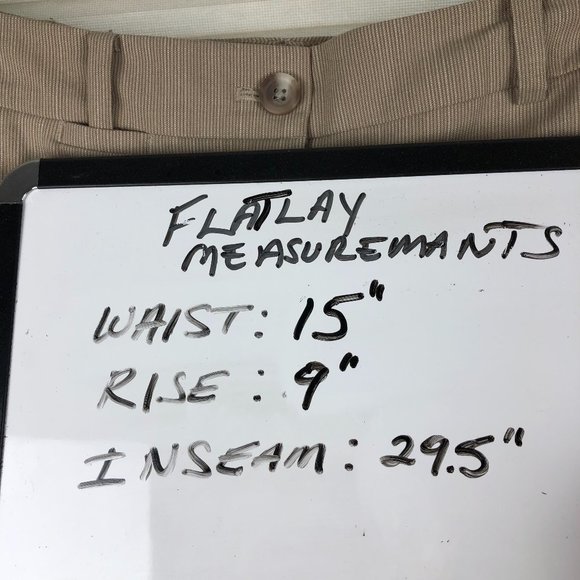 FLATLAY
MEASUREMANTS
WAIST: 15"
RISE: 9"
INSEAM: 29.5"